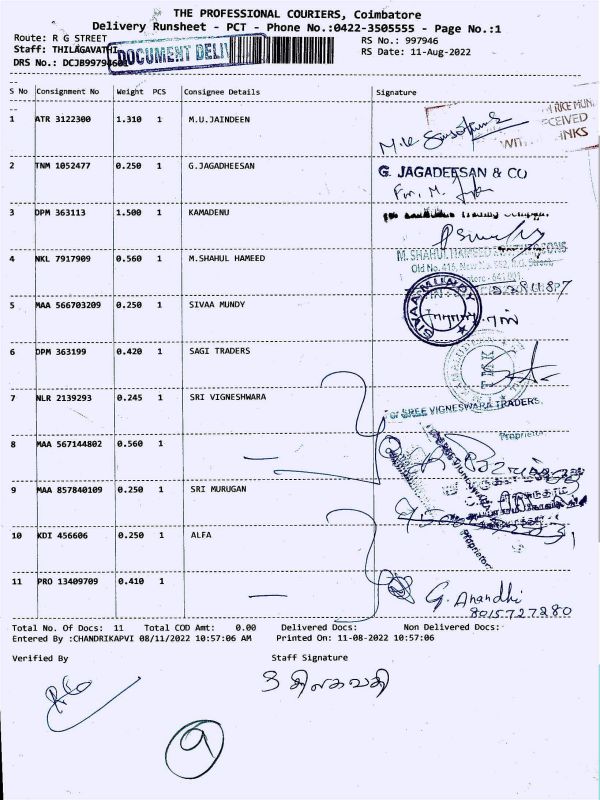 THE PROFESSIONAL COURIERS, Coimbatore
Delivery Runsheet - PCT - Phone No.:0422-3505555 - Page No.:1
Route: R G STREET
RS No.: 997946
Staff: THILAGAVATHI
RS Date: 11-Aug-2022
DOCUMENT DELI
DRS No.: DCJB997946
S No Consignment No Weight PCS Consignee Details Signature
1 ATR 3122300 1.310 1 M.U.JAINDEEN
2 TNM 1052477 0.250 1 G.JAGADHEESAN G. JAGADEESAN & CO
For, M.
3 DPM 363113 1.500 1 KAMADENU
4 NKL 7917909 0.560 1 M.SHAHUL HAMEED
5 MAA 566703209 0.250 1 SIVAA MUNDY SIVAA MUNDY
6 DPM 363199 0.420 1 SAGI TRADERS
7 NLR 2139293 0.245 1 SRI VIGNESHWARA
For SREE VIGNESWARA TRADERS,
Proprietor
8 MAA 567144802 0.560 1
9 MAA 857840109 0.250 1 SRI MURUGAN
10 KDI 456606 0.250 1 ALFA
Proprietor
11 PRO 13409709 0.410 1 G. Anandhi
8015727280
Total No. Of Docs: 11 Total COD Amt: 0.00 Delivered Docs: Non Delivered Docs:
Entered By :CHANDRIKAPVI 08/11/2022 10:57:06 AM Printed On: 11-08-2022 10:57:06
Verified By Staff Signature
திலகவதி
9